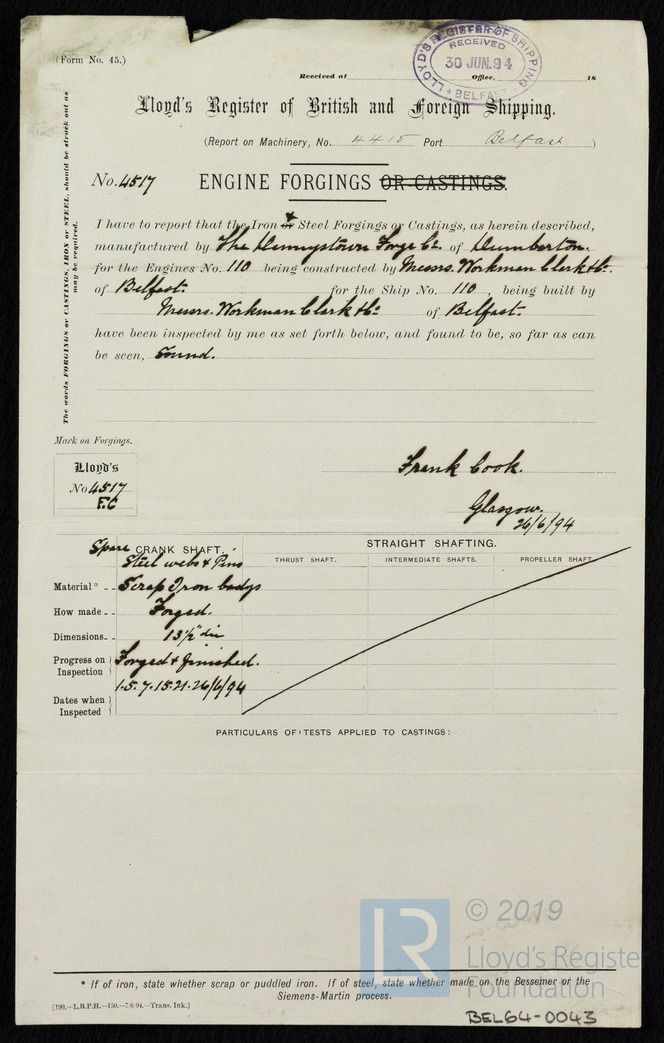 (Form No. 45.)
LLOYD'S REGISTER OF SHIPPING
RECEIVED
30 JUN.94
BELFAST
Received at Office, 18
Lloyd's Register of British and Foreign Shipping.
(Report on Machinery, No. 4415 Port Belfast )
No. 4517 ENGINE FORGINGS OR CASTINGS.
The words FORGINGS or CASTINGS, IRON or STEEL, should be struck out as
may be required.
I have to report that the Iron or & Steel Forgings or Castings, as herein described,
manufactured by The Dennystown Forge Co. of Dumbarton.
for the Engines No. 110 being constructed by Messrs. Workman Clark & Co.
of Belfast. for the Ship No. 110, being built by
Messrs. Workman Clark & Co of Belfast.
have been inspected by me as set forth below, and found to be, so far as can
be seen, Sound.
Mark on Forgings.
Lloyd's
No 4517
F.C
Frank Cook.
Glasgow.
26/6/94
Spare CRANK SHAFT. STRAIGHT SHAFTING.
Steel webs & Pins THRUST SHAFT. INTERMEDIATE SHAFTS. PROPELLER SHAFT.
Material* Scrap Iron bodys
How made Forged.
Dimensions 13½" dia
Progress on Inspection Forged & finished.
Dates when Inspected 1.5.7.15.21.26/6/94
PARTICULARS OF TESTS APPLIED TO CASTINGS:
LR © 2019
Lloyd's Register
Foundation
* If of iron, state whether scrap or puddled iron. If of steel, state whether made on the Bessemer or the
Siemens-Martin process.
[190.—L.R.P.H.—150.—7.6.94.—Trans. Ink.]
BEL64-0043